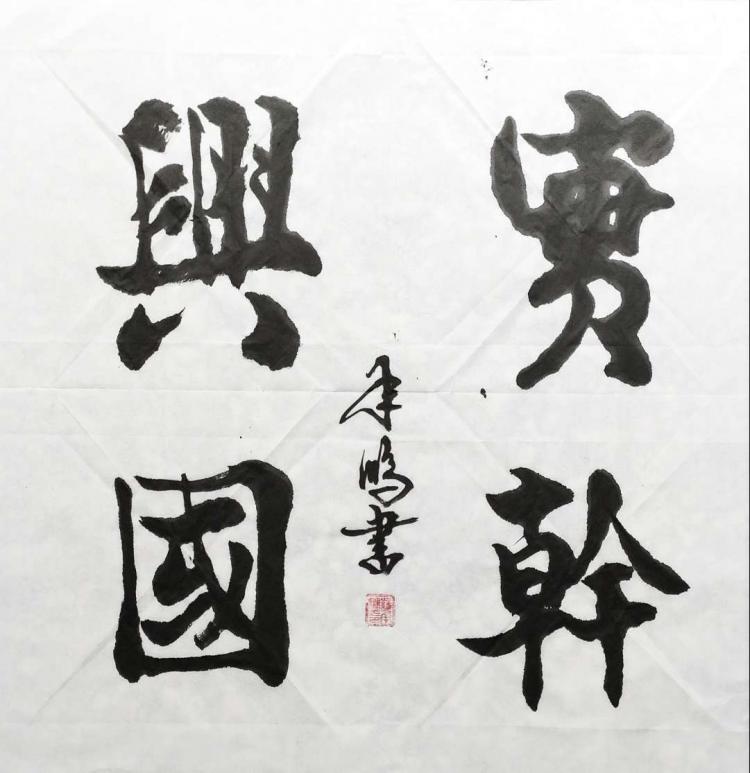 實幹
興國
鵬書